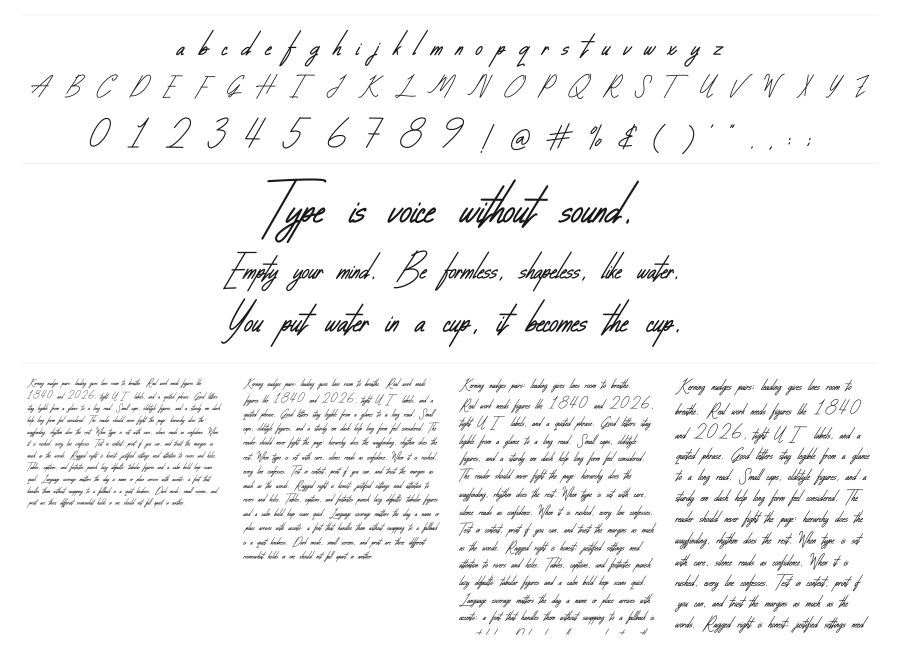 a b c d e f g h i j k l m n o p q r s t u v w x y z
A B C D E F G H I J K L M N O P Q R S T U V W X Y Z
0 1 2 3 4 5 6 7 8 9 ! @ # % & ( ) ' " . , : ;
Type is voice without sound.
Empty your mind. Be formless, shapeless, like water.
You put water in a cup, it becomes the cup.
Kerning nudges pairs: leading gives lines room to breathe. Real work needs figures like
1840 and 2026, tight UI labels, and a quoted phrase. Good letters
stay legible from a glance to a long read. Small caps, oldstyle figures, and a sturdy em dash
help long form feel considered. The reader should never fight the page: hierarchy does the
wayfinding, rhythm does the rest. When type is set with care, silence reads as confidence. When
it is rushed, every line confesses. Test in context, print if you can, and trust the margins as
much as the words. Ragged right is honest: justified settings need attention to rivers and holes.
Tables, captions, and footnotes punish lazy defaults: tabular figures and a calm bold keep scans
quick. Language coverage matters the day a name or place arrives with accents: a font that
handles them without swapping to a fallback is a quiet kindness. Dark mode, small screens, and
print are three different
Kerning nudges pairs: leading gives lines room to breathe. Real work needs
figures like 1840 and 2026, tight UI labels, and a
quoted phrase. Good letters stay legible from a glance to a long read. Small
caps, oldstyle figures, and a sturdy em dash help long form feel considered. The
reader should never fight the page: hierarchy does the wayfinding, rhythm does the
rest. When type is set with care, silence reads as confidence. When it is rushed,
every line confesses. Test in context, print if you can, and trust the margins as
much as the words. Ragged right is honest: justified settings need attention to
rivers and holes. Tables, captions, and footnotes punish lazy defaults: tabular figures
and a calm bold keep scans quick. Language coverage matters the day a name or
place arrives with accents: a font that handles them without swapping to a fallback
is a quiet kindness. Dark mode, small screens, and print are three different
Kerning nudges pairs: leading gives lines room to breathe.
Real work needs figures like 1840 and 2026,
tight UI labels, and a quoted phrase. Good letters stay
legible from a glance to a long read. Small caps, oldstyle
figures, and a sturdy em dash help long form feel considered.
The reader should never fight the page: hierarchy does the
wayfinding, rhythm does the rest. When type is set with care,
silence reads as confidence. When it is rushed, every line confesses.
Test in context, print if you can, and trust the margins as much
as the words. Ragged right is honest: justified settings need
attention to rivers and holes. Tables, captions, and footnotes punish
lazy defaults: tabular figures and a calm bold keep scans quick.
Language coverage matters the day a name or place arrives with
accents: a font that handles them without swapping to a fallback is
Kerning nudges pairs: leading gives lines room to
breathe. Real work needs figures like 1840
and 2026, tight UI labels, and a
quoted phrase. Good letters stay legible from a glance
to a long read. Small caps, oldstyle figures, and a
sturdy em dash help long form feel considered. The
reader should never fight the page: hierarchy does the
wayfinding, rhythm does the rest. When type is set
with care, silence reads as confidence. When it is
rushed, every line confesses. Test in context, print if
you can, and trust the margins as much as the
words. Ragged right is honest: justified settings need